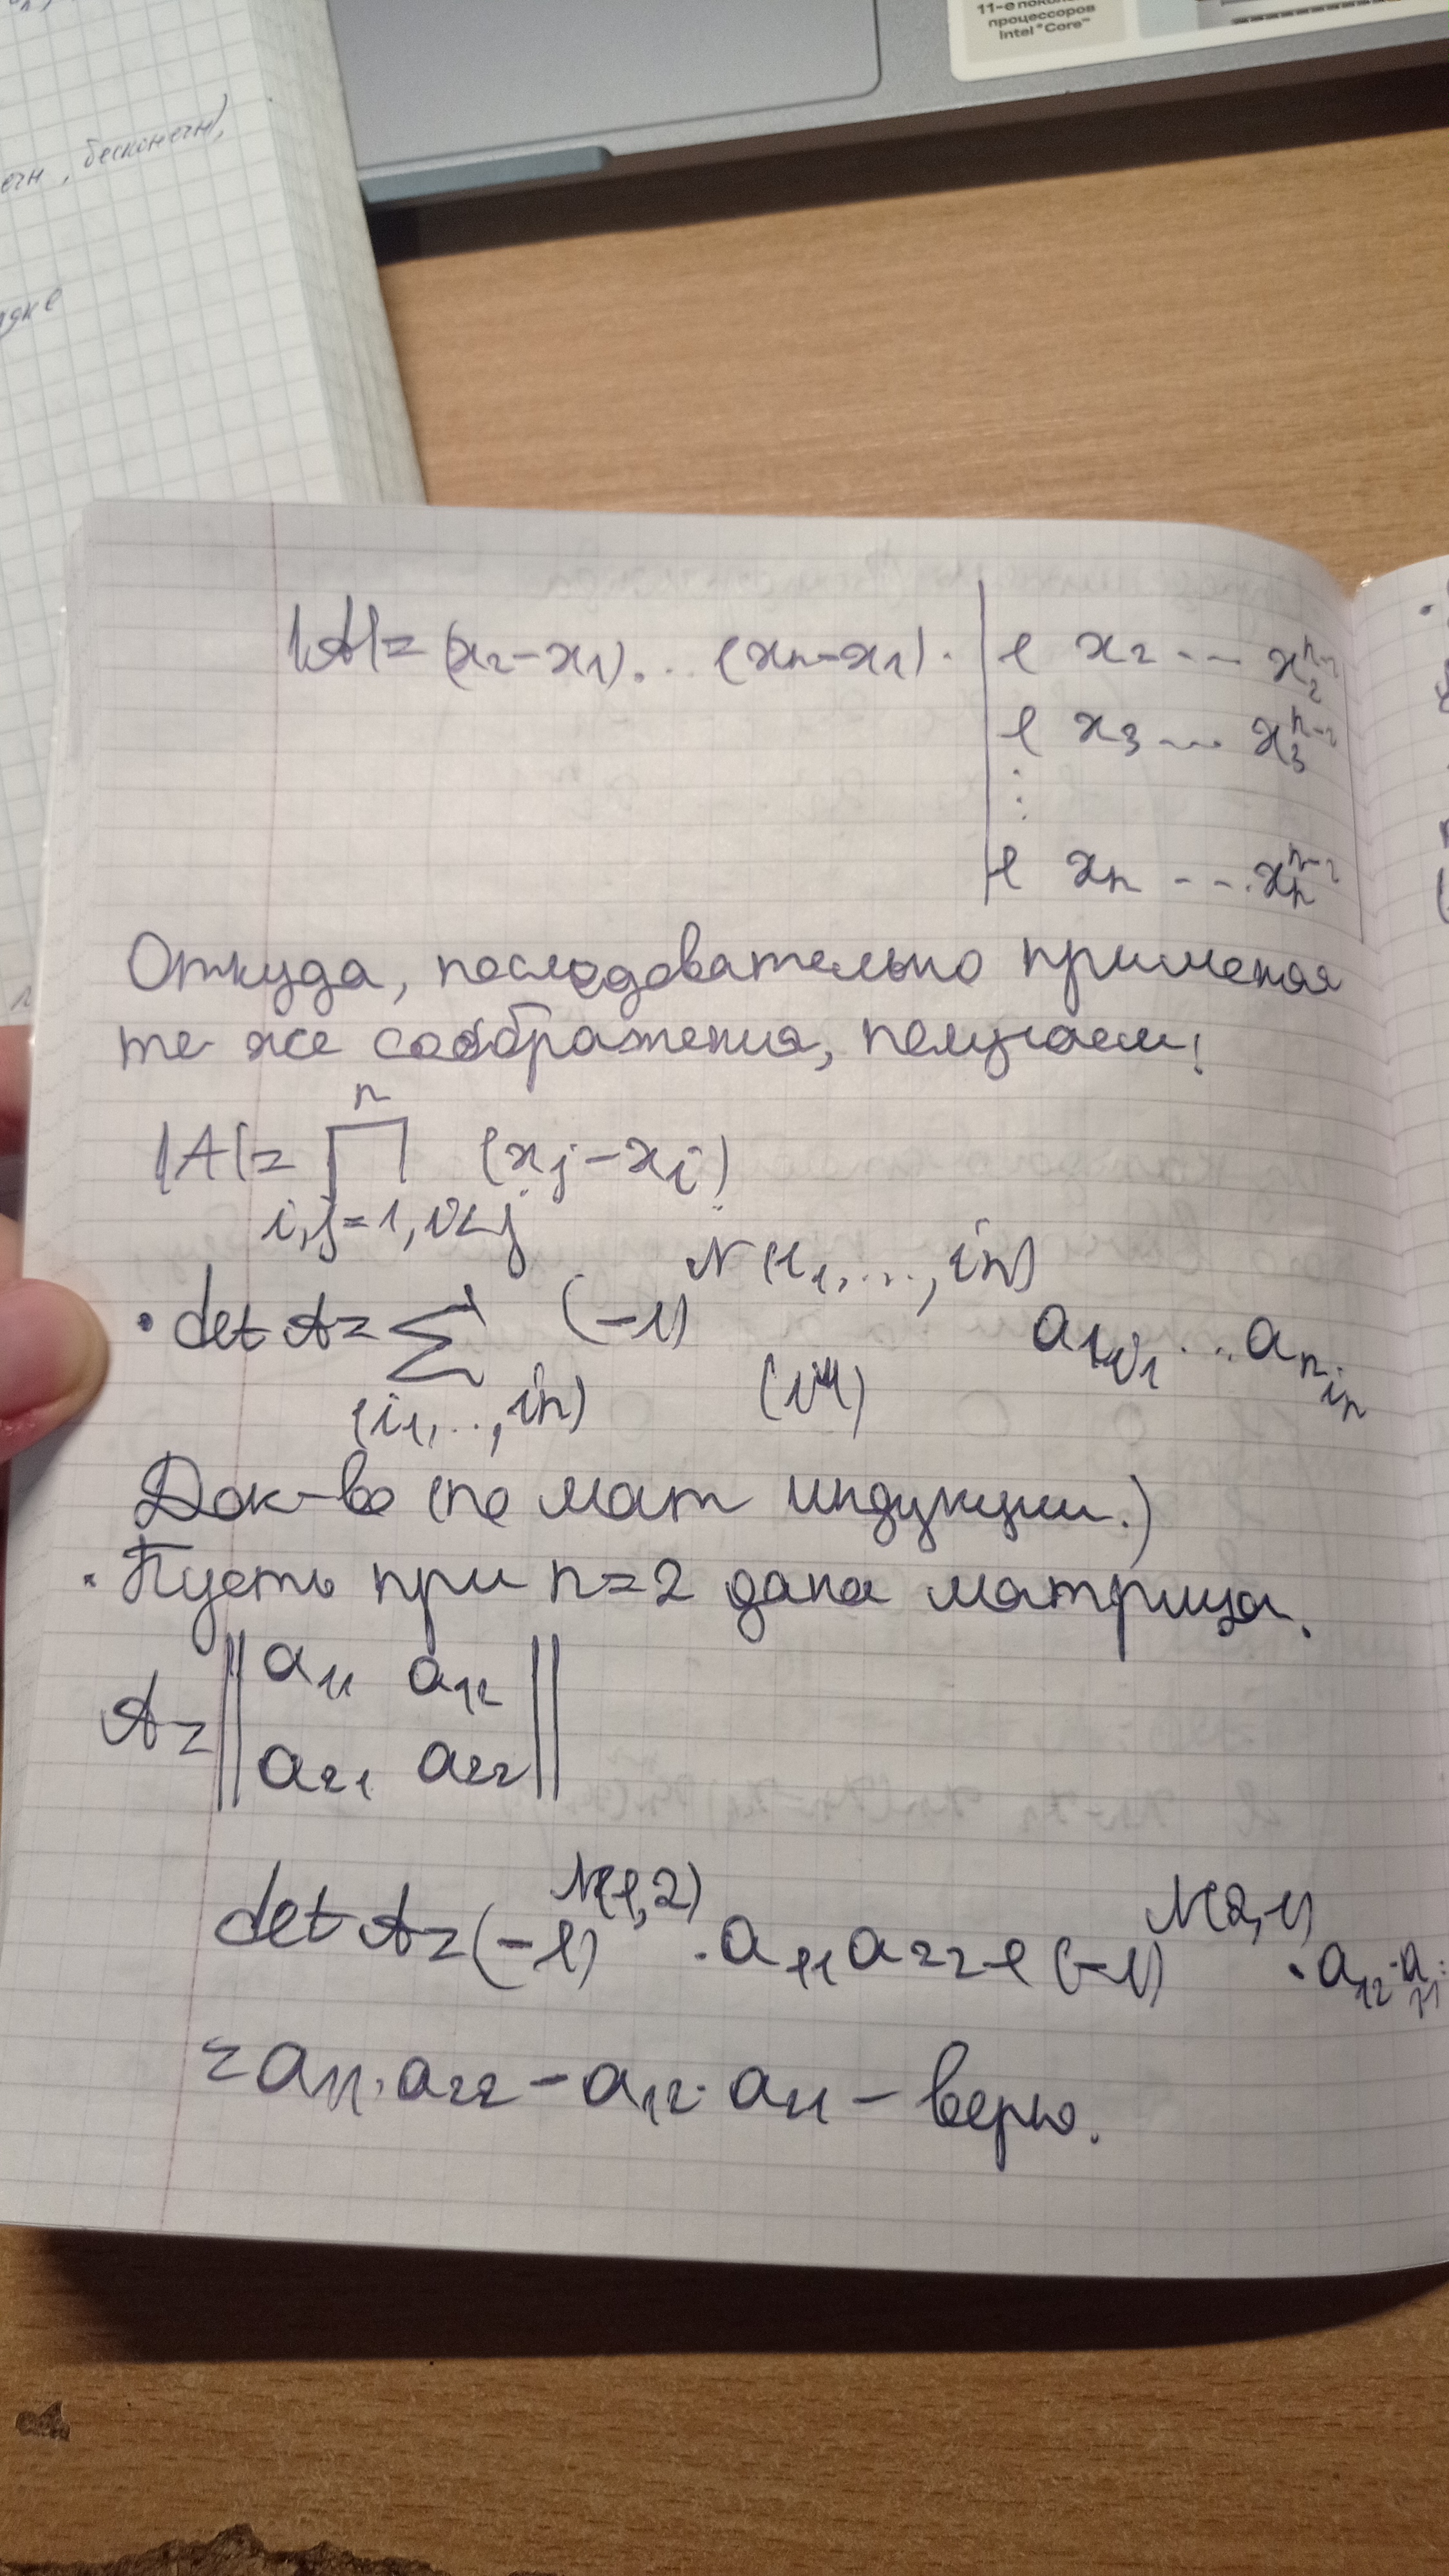 11-е покол
процессоров
Intel® Core™
ечн, бесконечн),
ядке
|A| = (x₂-x₁)...(xₙ-x₁) · | 1 x₂ ... x₂ⁿ⁻²
1 x₃ ... x₃ⁿ⁻²
⋮
1 xₙ ... xₙⁿ⁻² |
Откуда, последовательно применяя
те же соображения, получаем:
n
|A| = ∏ (xj - xi)
i,j=1, i<j
• det A = ∑ (-1)^N(i₁,...,iₙ) a₁i₁ ... aₙiₙ
(i₁,...,iₙ)
Док-во (по мат индукции.)
• Пусть при n=2 дана матрица.
A = || a₁₁ a₁₂
a₂₁ a₂₂ ||
det A = (-1)^N(1,2) · a₁₁ a₂₂ + (-1)^N(2,1) · a₁₂ · a₂₁ =
= a₁₁ · a₂₂ - a₁₂ · a₂₁ - верно.